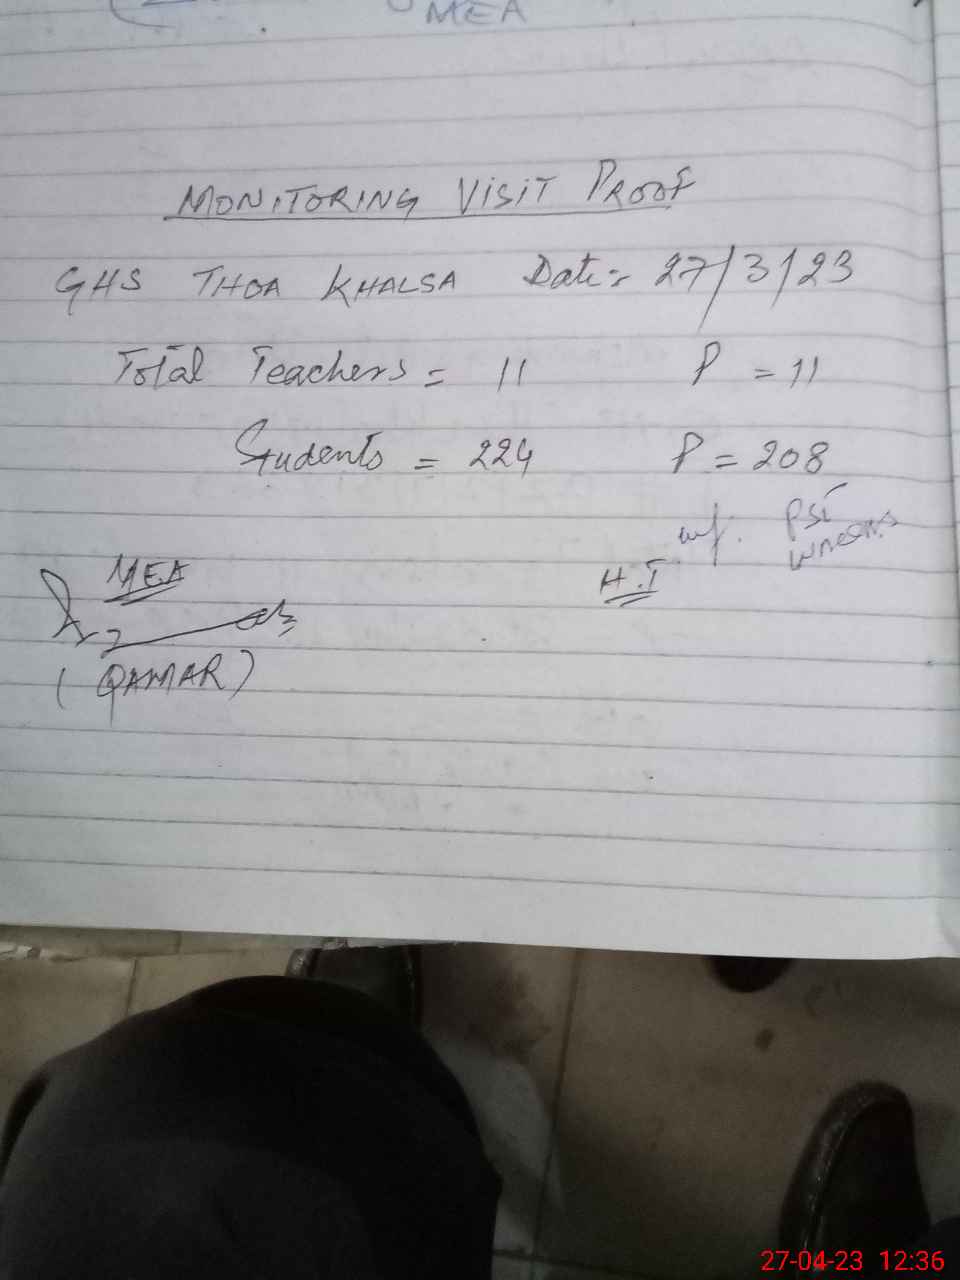 MEA
MONITORING VISIT PROOF
GHS THOA KHALSA Date:- 27/3/23
Total Teachers = 11 P = 11
Students = 224 P = 208
PST
MEA
H.T
(QAMAR)
27-04-23 12:36